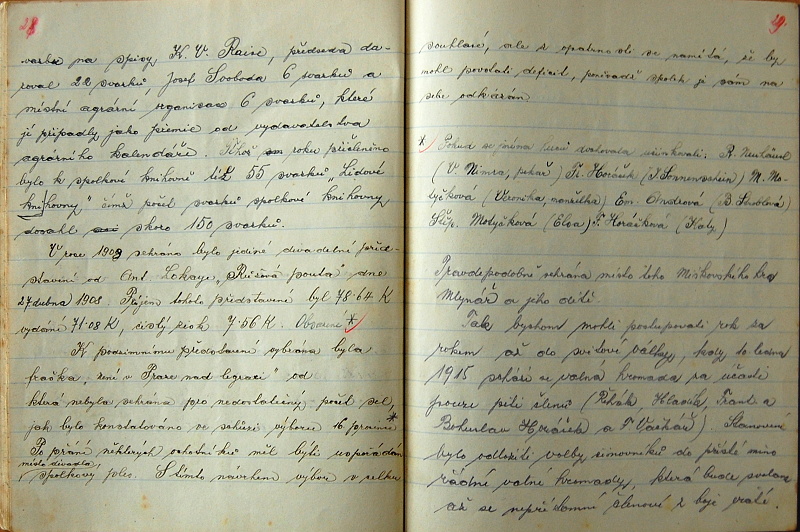 28
svazku na spisy K. V. Raise, předseda da-
roval 22 svazků, Josef Svoboda 6 svazků a
místní agrární organisace 6 svazků, které
jí připadly jako premie od vydavatelstva
agrárního kalendáře. Téhož roku přičleněno
bylo k spolkové knihovně též 55 svazků „Lidové
knihovny" čímž počet svazků spolkové knihovny
dosáhl skoro 150 svazků.
V roce 1908 sehráno bylo jediné divadelní před-
stavení od Ant. Lokaye „Růžová pouta" dne
27 dubna 1908. Příjem tohoto představení byl 78·64 K
vydání 71·08 K, čistý zisk 7·56 K. Obsazení *
K podzimnímu představení vybrána byla
fraška, „není v Praze nad legraci" od
která nebyla sehrána pro nedostatečný počet sil,
jak bylo konstatováno ve schůzi výboru 16 prosince *
Po přání některých ochotníků měl býti uspořádán
místo divadla
spolkový ples. S tímto návrhem výbor v celku
29.
souhlasí, ale z opatrnosti se namítá, že by
mohl povstati deficit, poněvadž spolek je sám na
sebe odkázán.
* Pokud se jména herců účinkovali: R. Neuhäusl
(V. Nimra, pekař) Fr. Horáček (Sonnenschein) M. Mo-
tyčková (Veronika, manželka) Em. Ondrová (B.
Štěp. Motyčková (Elsa) F. Horáčková (Katy)
Pravdepodobně sehrána místo toho Miškovského hra
Mlynář a jeho dítě.
Tak bychom mohli postupovati rok za
rokem až do světové války, kdy 10 ledna
1915 schází se valná hromada za účasti
pouze pěti členů (Řehák, Hladík, Frant a
Bohuslav Horáček a Fr Vachař). Stanoveno
bylo odložiti volby činovníků do příště mimo
řádné valné hromady, která bude svolána
až se nepřítomní členové z boje vrátí.